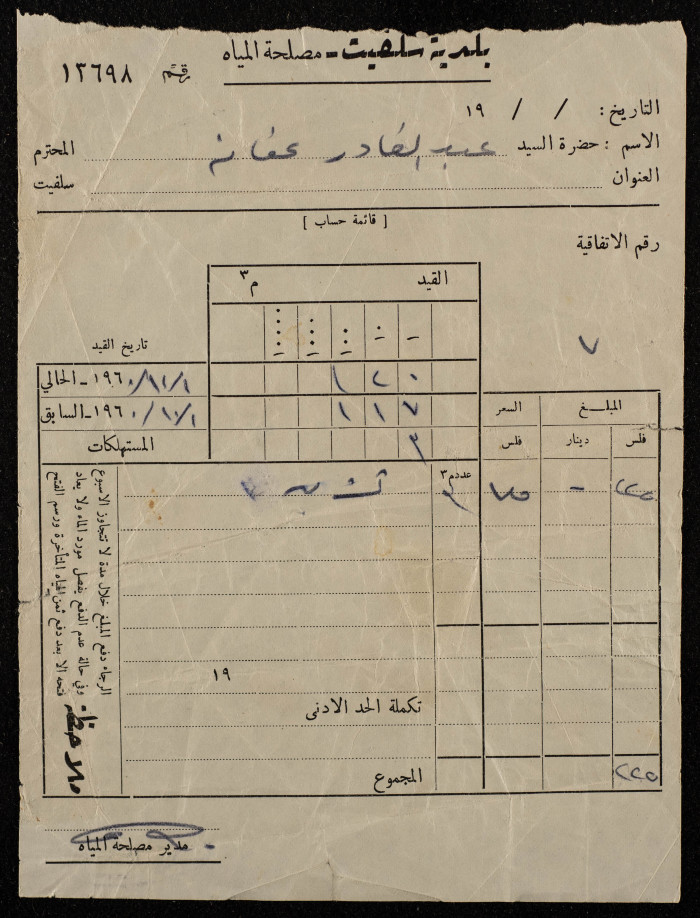 بلدية سلفيت - مصلحة المياه
رقم ١٣٦٩٨
التاريخ : / / ١٩
الاسم : حضرة السيد عبد القادر عفانه المحترم
العنوان سلفيت
[ قائمة حساب ]
رقم الاتفاقية
٧
القيد م٣
تاريخ القيد
١٩٦٠/١٢/١ - الحالي ١٢٠
١٩٦٠/١١/١ - السابق ١١٧
المستهلكات ٣
المبلــغ السعر
فلس دينار فلس عدد م٣
٢٢٥ - ٧٥ ٣
١٩
تكملة الحد الادنى
المجموع ٢٢٥
ملاحظة
الرجاء دفع المبلغ خلال مدة لا تتجاوز الاسبوع
وفي حالة عدم الدفع يفصل مورد الماء ولا يعاد
فتحه الا بعد دفع ثمن المياه المتأخرة ورسم الفتح
مدير مصلحة المياه